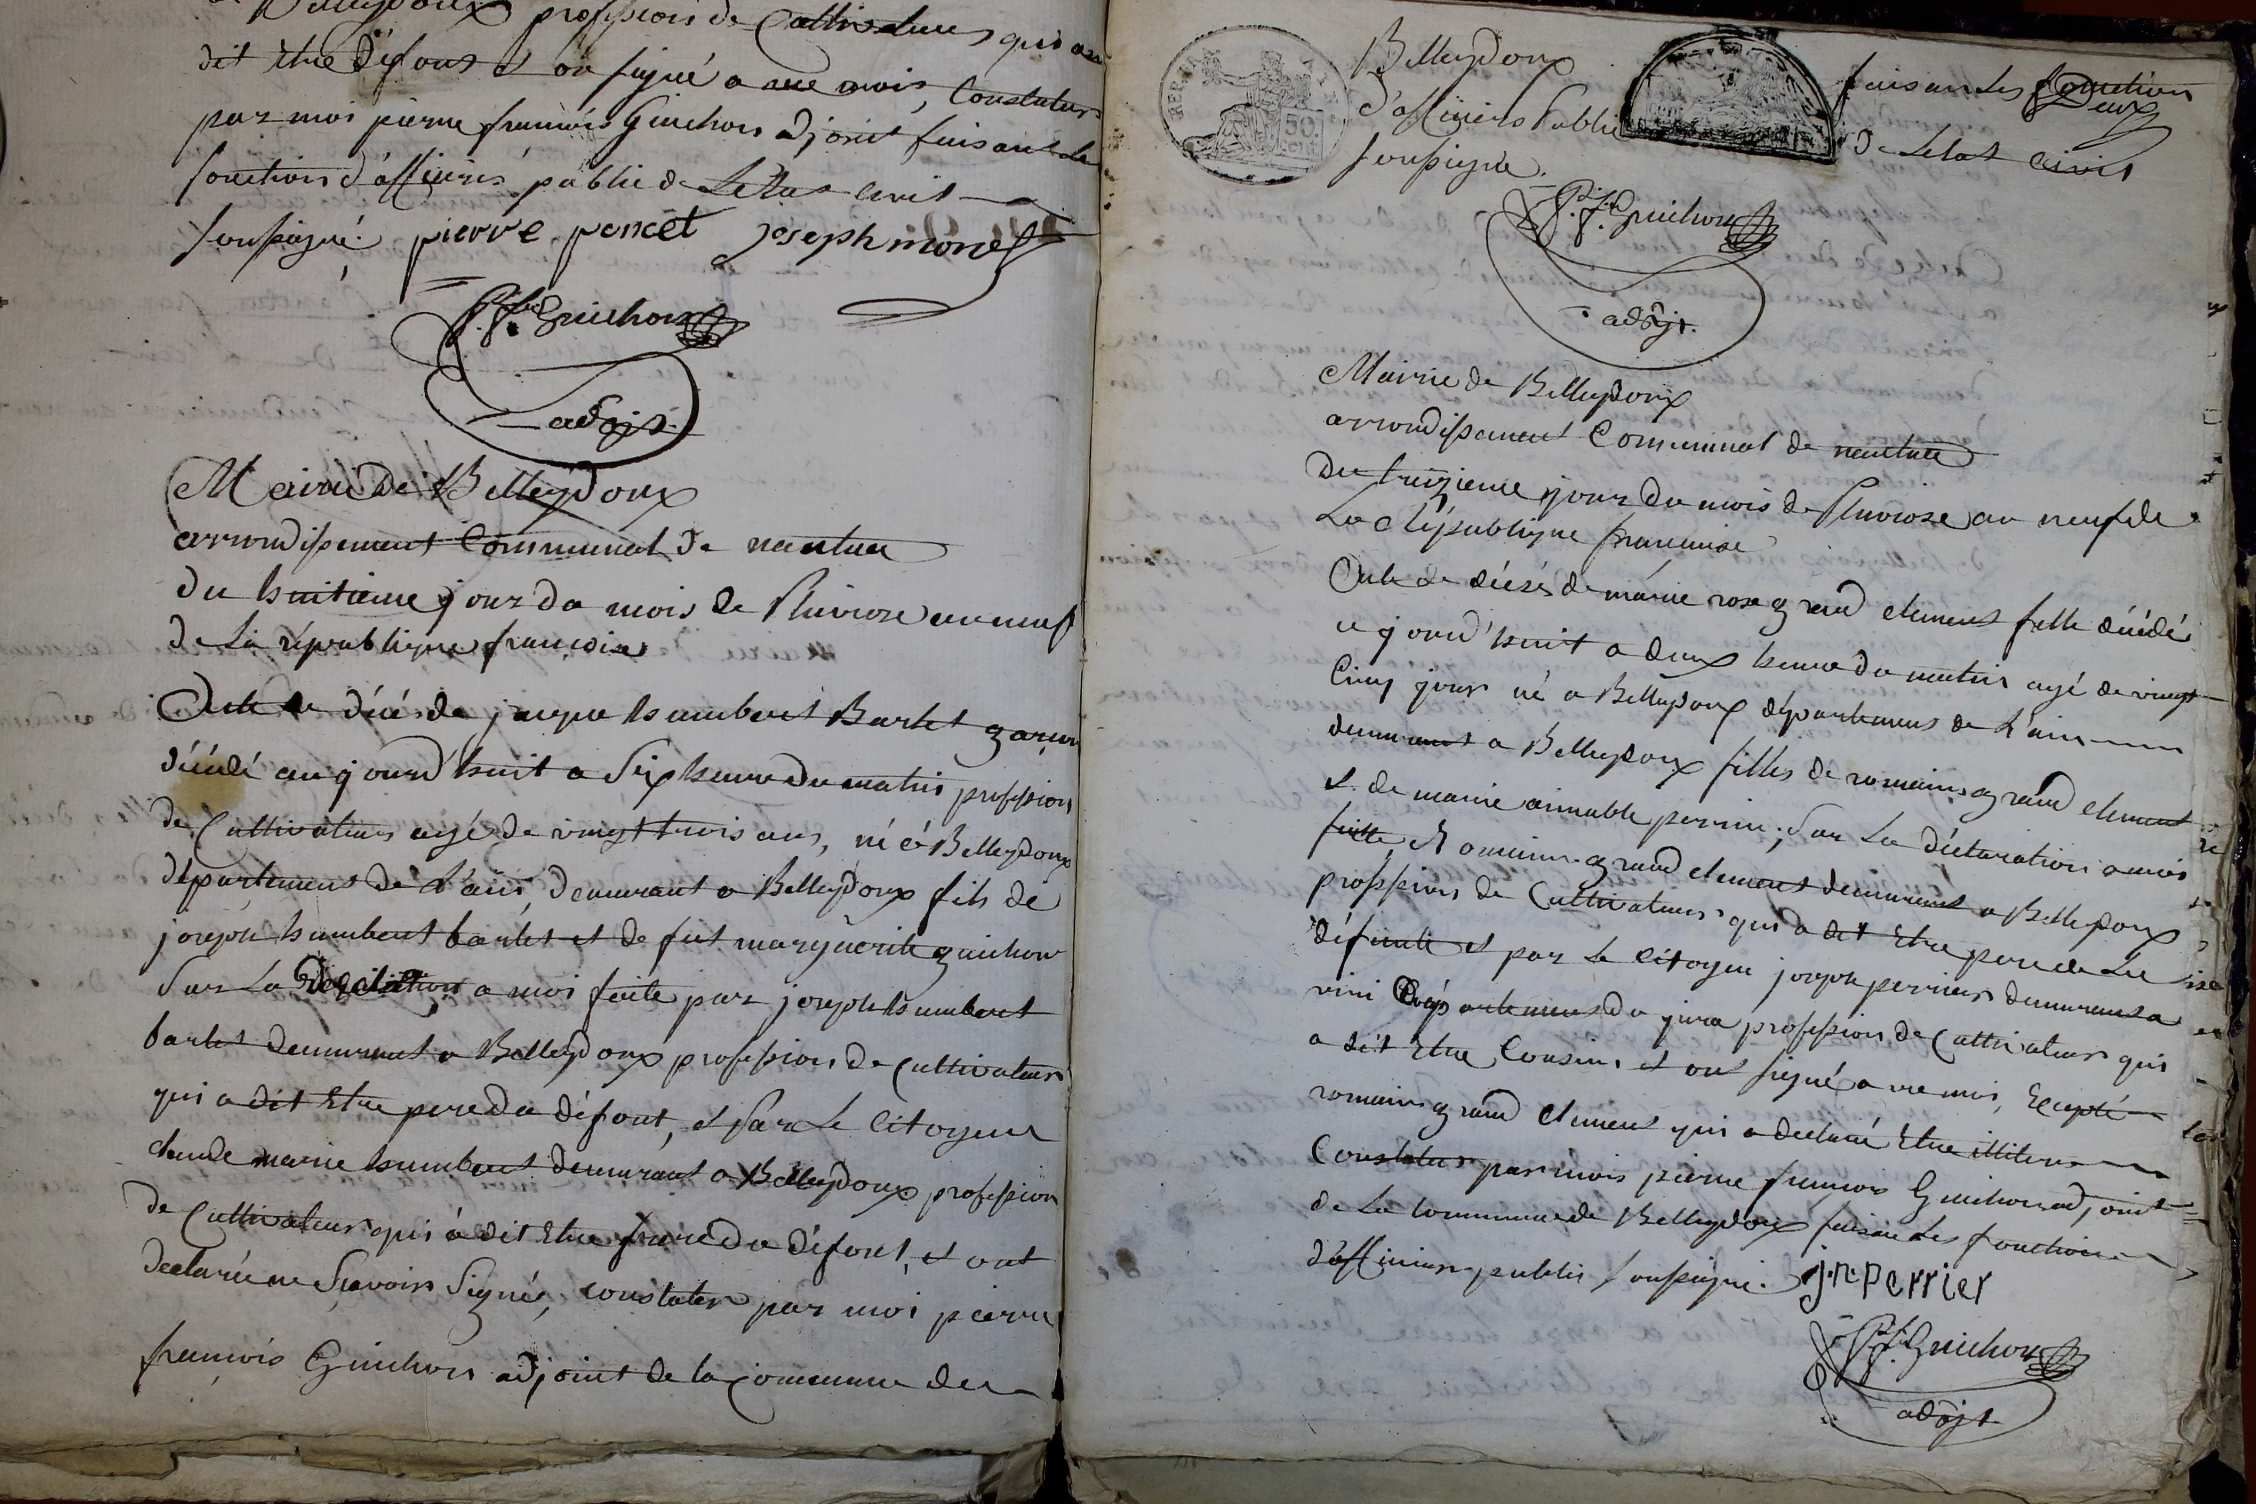 Belleydoux profession de Cultivateurs qui on
dit Etre Défont et on signé a vec mois, Constater
par moi pierre francois Guichon adjoint faisant les
fonctions d'afficiers public de Letat civil
soussigné. pierre poncet joseph monet
P. f. Guichon
adojt.
Mairie De Belleydoux
arrondissement Communal de nantua
du huitieme jour du mois de Pluviose an neuf
de La république françoise
Acte de décé de jacque humbert Barlet garcon
décédé aujourd'huit a Six heure du matin profession
de Cultivateur agé de vingt trois ans, né à Belleydoux
département de L'ain, demeurant a Belleydoux fils de
joseph humbert barlet et de fut marguerite guichon
Sur La Declaration a moi faite par joseph humbert
barlet demeurant a Belleydoux profession de Cultivateur
qui a dit Etre pere du défont, et Par Le Citoyen
claude marie humbert demeurant a Belleydoux profession
de Cultivateur qui à dit Etre frere Du défont, et ont
declarée ne Sçavoir Signée, constater par moi pierre
francois Guichon adjoint de la Commune de
Belleydoux faisan Les fonction
Deux
d'afficiers Public de Letat civil
soussigné.
P. f. Guichon
adojt.
Mairie de Belleydoux
arrondissement Communal de nantua
Du treizieme jour du mois de Pluviose an neuf de
La République francaise
Acte de décés de marie rose grand clement fille décédé
aujourd'huit a deux heure du matin agé de vingt
Cinq jour né a Belleydoux département de L'ain
demeurant a Belleydoux filles de romain grand clement
et de marie aimable perrin; Sur La déclaration a moi
faitte Romain grand clement demeurant a Belleydoux
profession de Cultivateur qui a dit Etre pere de La
défunte et par Le Citoyen joseph perrier demeurant a
viri Département du jura profession de Cultivateur qui
a dit Etre Cousin et ont signé a vec moi, Excepté
romain grand clement qui a declaré Etre illitere
Constater par mois pierre françois Guichon adjoint
de La Commune de Belleydoux faisan Les fonction
d'afficiers public soussigné. jph perrier
P. f. Guichon
adojt